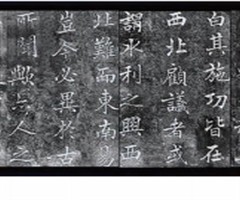 白其施功皆在
西北顧議者或
謂水利之興西
北難而東南易
豈今必異於古
所聞歟亦人之